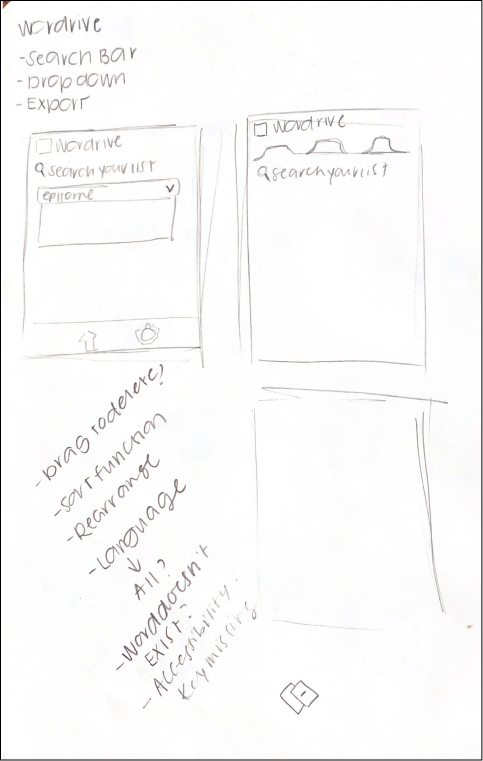 Wordrive
-Search Bar
-Dropdown
-Export
Wordrive
search your list
epitome
Wordrive
search your list
-Drag to delete?
-Sort function
-Rearrange
-Language
All?
-Word doesn't
Exist?
-Accessibility.
Key missing